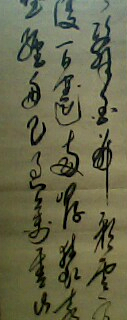 辭白帝彩雲間
陵一日還兩岸猿聲
住輕舟已過萬重山